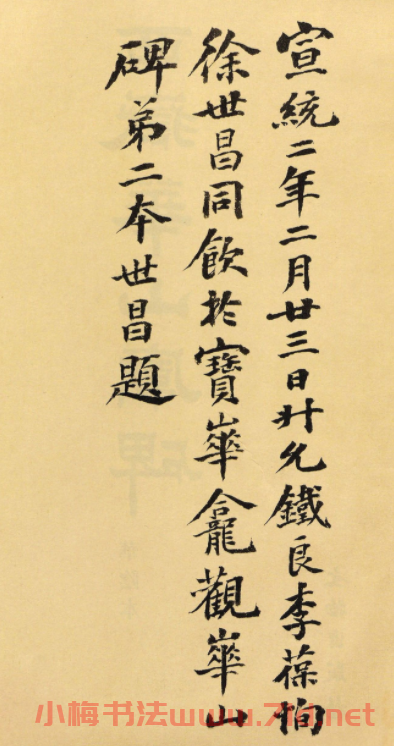 宣統二年二月廿三日升允鐵良李葆恂
徐世昌同飲於寶華龕觀華山
碑弟二本世昌題
小梅书法www.7lq.net